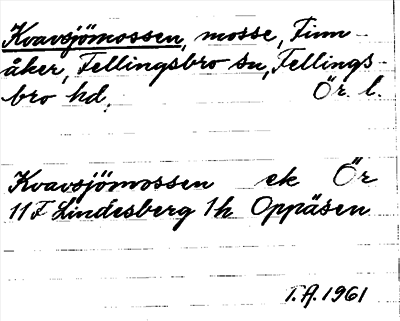 Kvavsjömossen, mosse, Finn-
åker, Fellingsbro sn, Fellings-
bro hd, Ör. l.
Kvavsjömossen ek Ör
11 F Lindesberg 1h Oppåsen
T.A. 1961